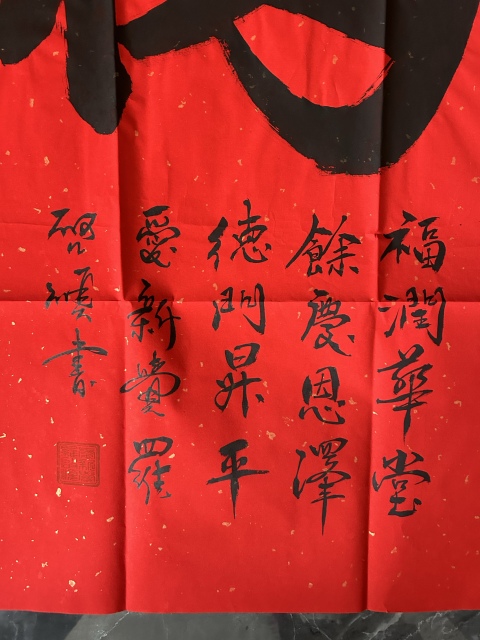 福潤華堂
餘慶恩澤
德門昇平
愛新覺羅
書